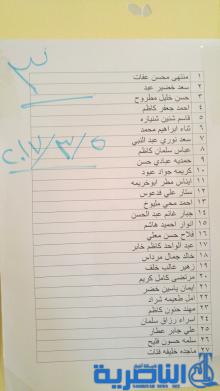 ٣
١ منتهى محسن عفات
٢ سعد خضير عبد
٣ حسن خليل مطروح
٤ احمد جعفر كاظم
٥ قاسم شنين شنياره
٦ ثناء ابراهيم محمد
٧ سعد نوري عبد النبي
٨ عباس سلمان كاظم
٩ حمديه عبادي حسن
١٠ كريمه جواد عبود
١١ ايناس مطر ابوخريمه
١٢ ستار علي فدعوس
١٣ احمد محي مليوخ
١٤ جبار غانم عبد الحسن
١٥ انوار احميد هاشم
١٦ فلاح حسن معلي
١٧ عبد الواحد كاظم خابر
١٨ خالد جمال مرداس
١٩ زهير غالب خلف
٢٠ مرتضى كامل كريم
٢١ ايمان ياسين خضير
٢٢ امل طعيمه شراد
٢٣ مهند حنون كاظم
٢٤ اسراء رزاق سلمان
٢٥ علي جابر عطار
٢٦ سلمه حسون فليح
٢٧ ماجده خليفه فتات
٢٠١٧/٣/٥
الناصرية